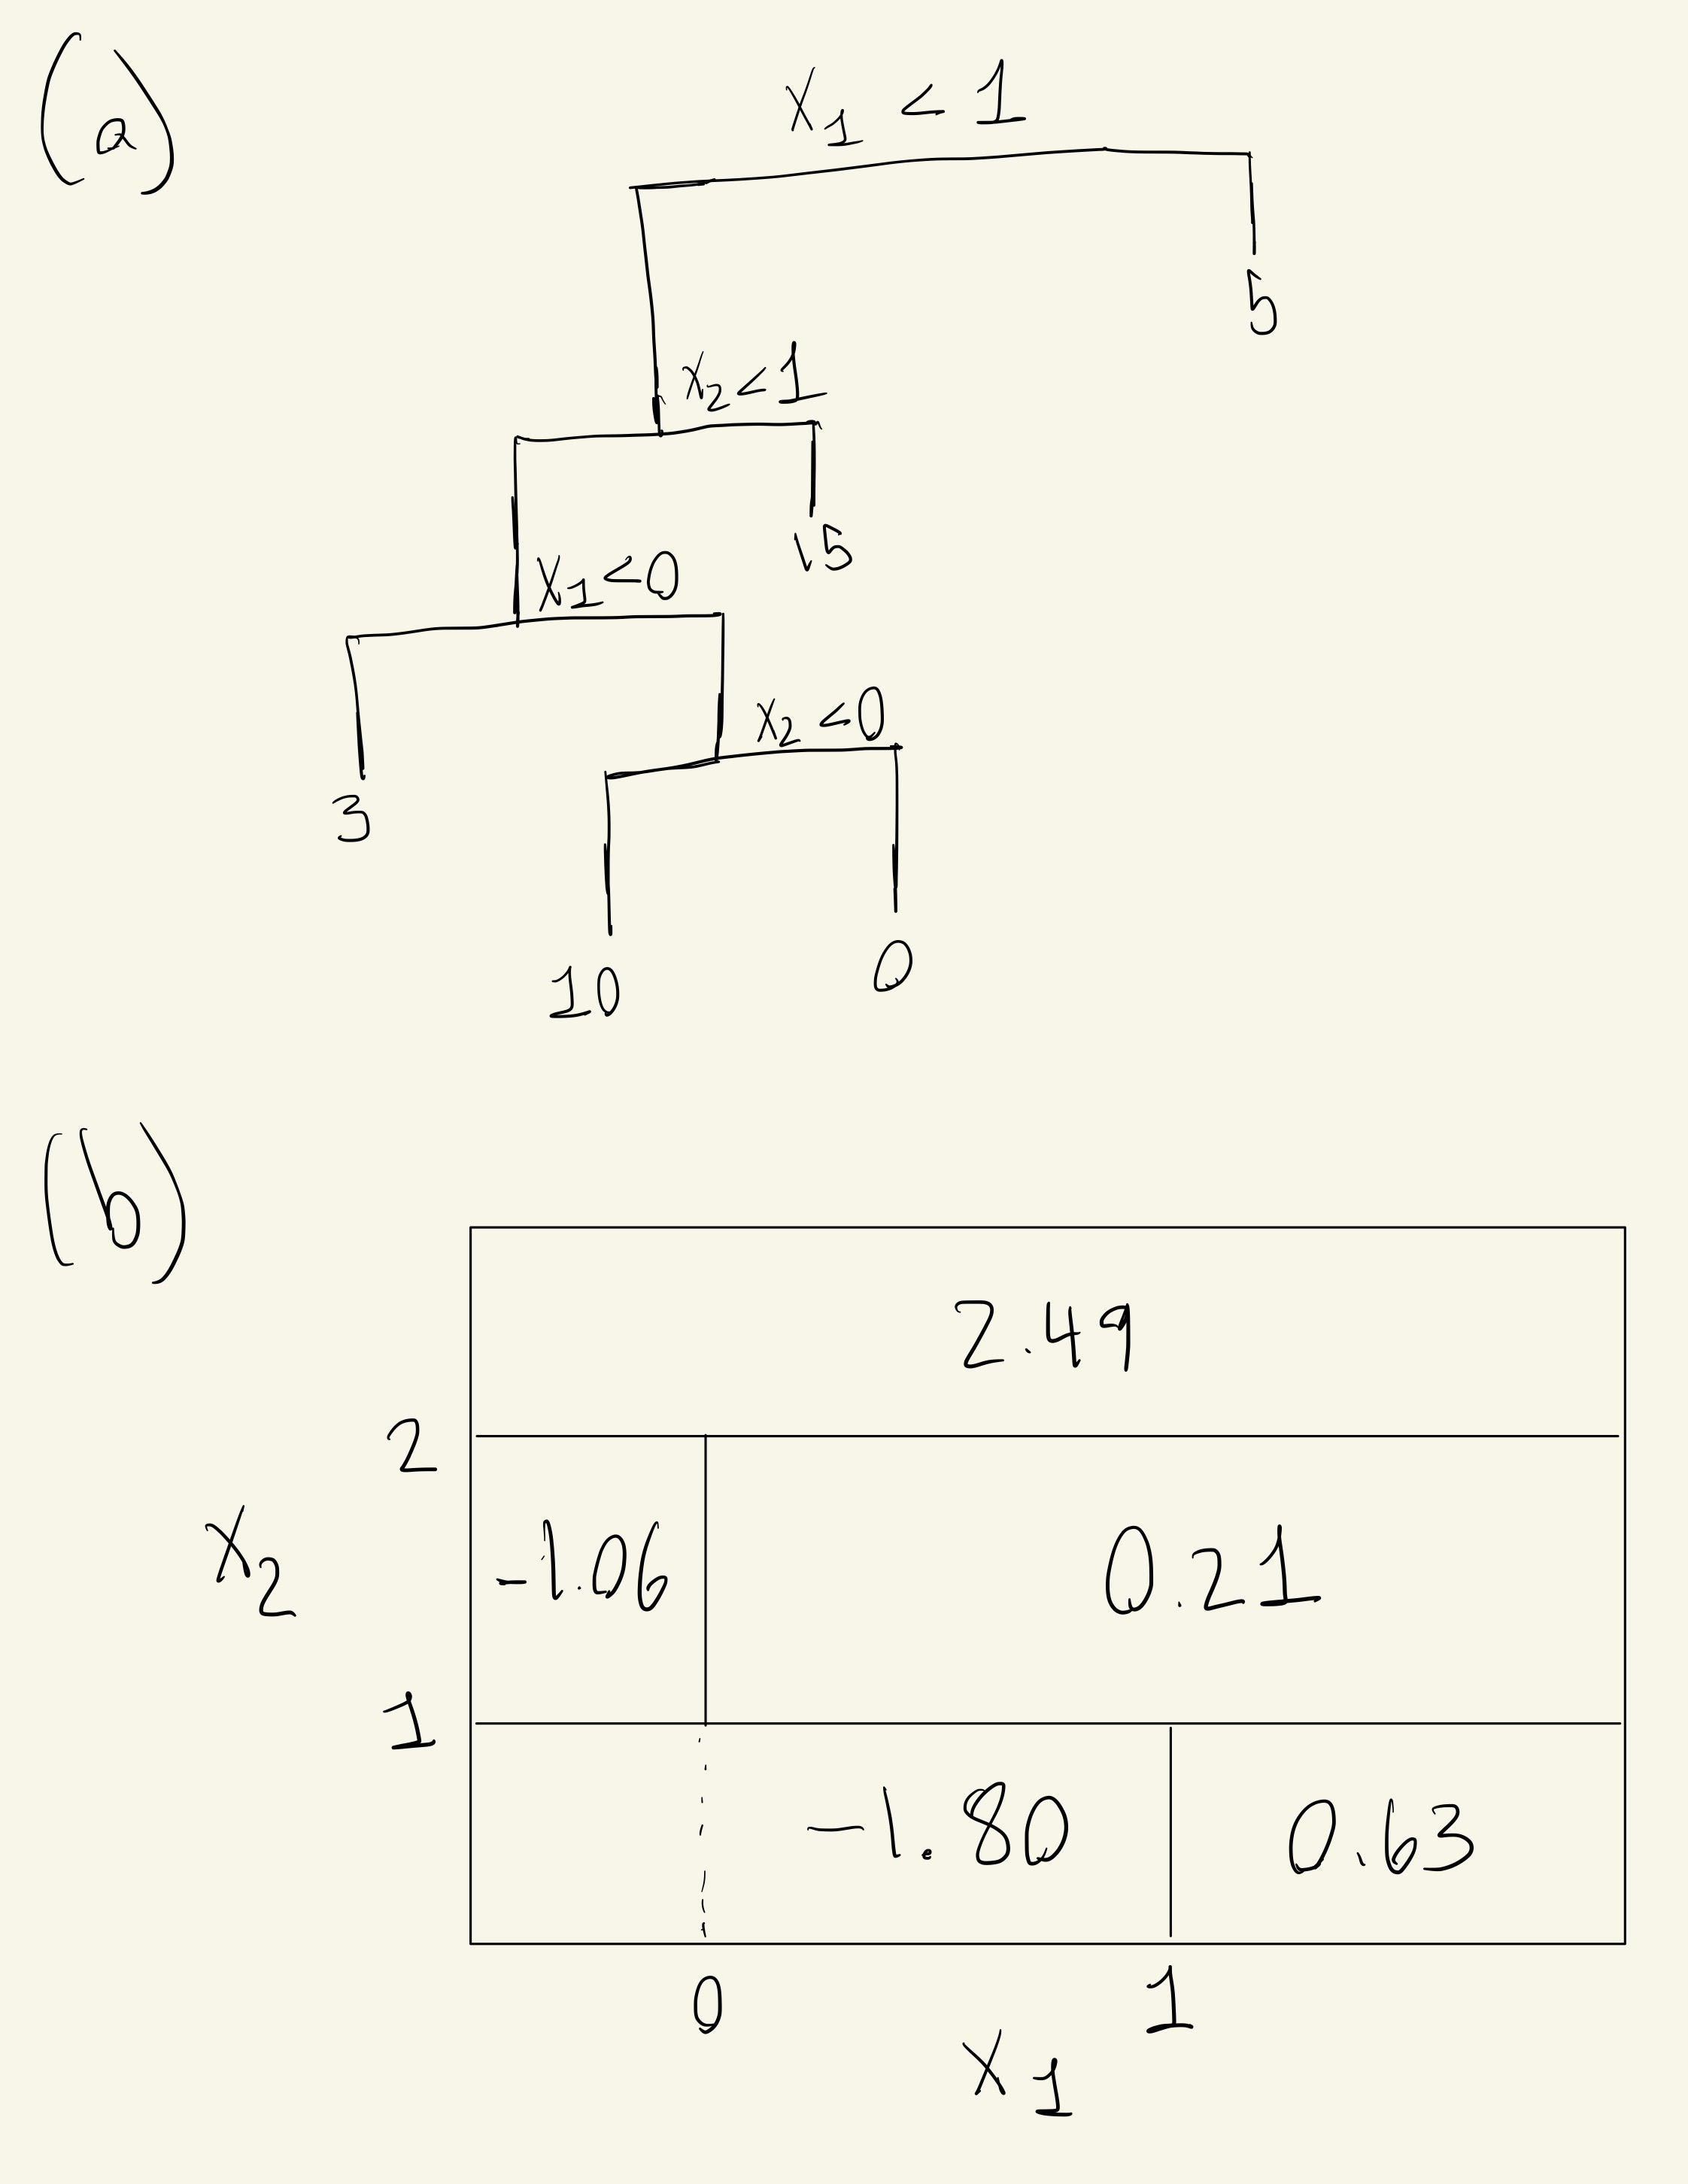 (a)
X1 < 1
5
X2 < 1
X1 < 0
15
X2 < 0
3
10 0
(b)
2.49
2
-1.06 0.21
X2
1
-1.80 0.63
0 1
X1